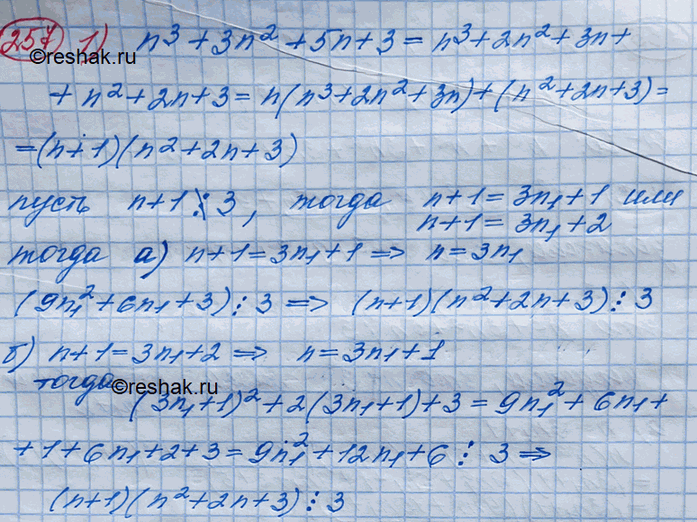 257 1) n³ + 3n² + 5n + 3 = n³ + 2n² + 3n +
©reshak.ru
+ n² + 2n + 3 = n(n³ + 2n² + 3n) + (n² + 2n + 3) =
= (n + 1)(n² + 2n + 3)
пусть n + 1 ⋮̸ 3, тогда n + 1 = 3n₁ + 1 или
n + 1 = 3n₁ + 2
тогда а) n + 1 = 3n₁ + 1 ⇒ n = 3n₁
(9n₁² + 6n₁ + 3) ⋮ 3 ⇒ (n + 1)(n² + 2n + 3) ⋮ 3
б) n + 1 = 3n₁ + 2 ⇒ n = 3n₁ + 1
тогда ©reshak.ru
(3n₁ + 1)² + 2(3n₁ + 1) + 3 = 9n₁² + 6n₁ +
+ 1 + 6n₁ + 2 + 3 = 9n₁² + 12n₁ + 6 ⋮ 3 ⇒
(n + 1)(n² + 2n + 3) ⋮ 3